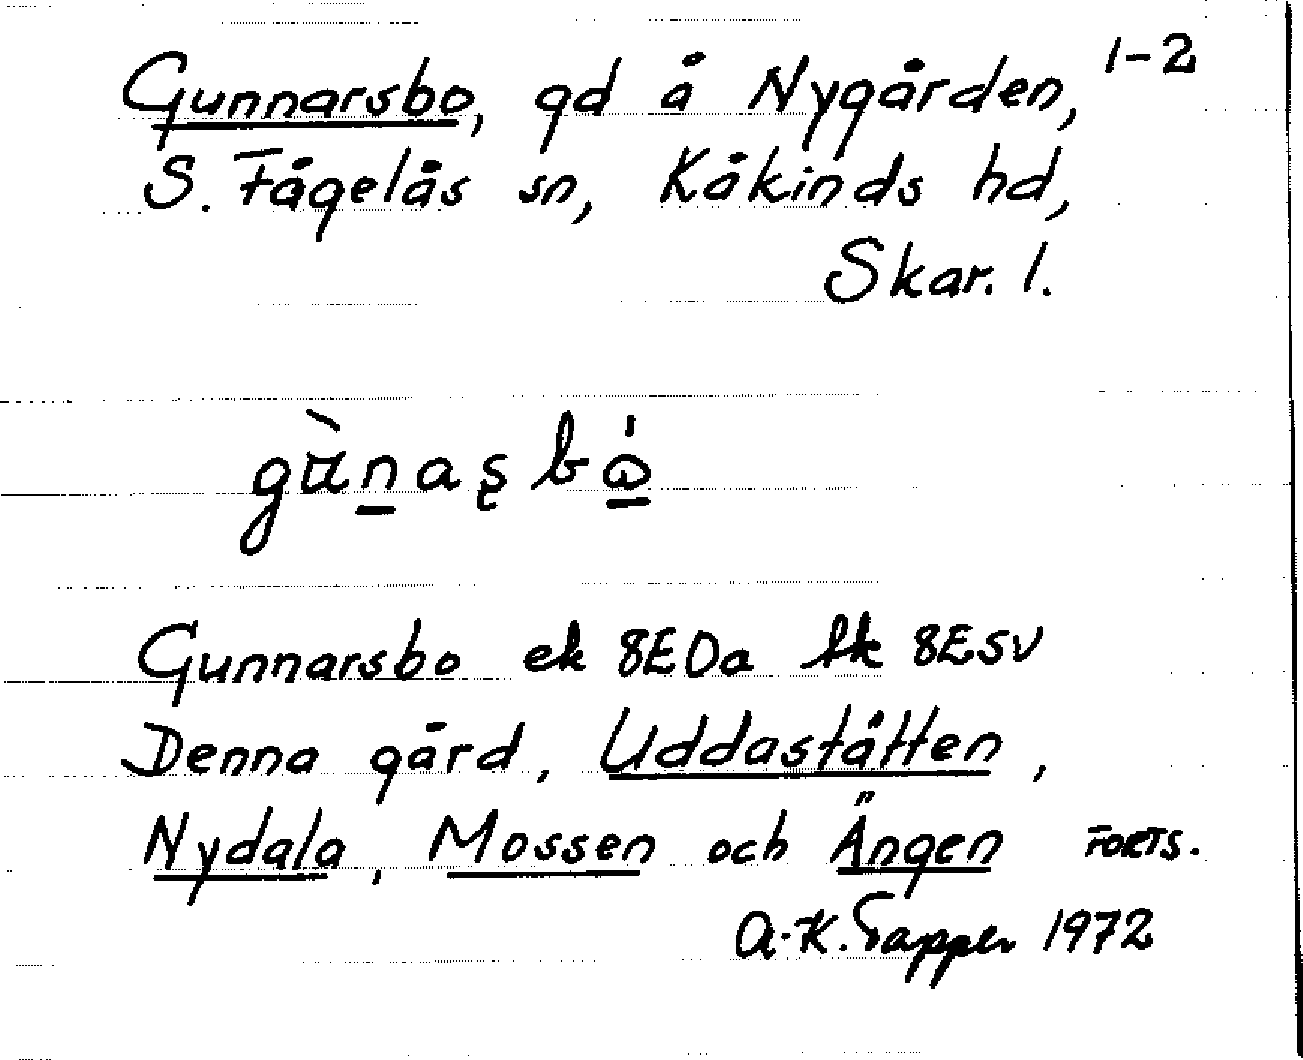 Gunnarsbo, gd å Nygården, 1-2
S. Fågelås sn, Kåkinds hd,
Skar. l.
Gunnarsbo ek 8EDa fk 8E5v
Denna gård, Uddaståtten,
Nydala, Mossen och Ängen FORTS.
A-K. Tapper 1972